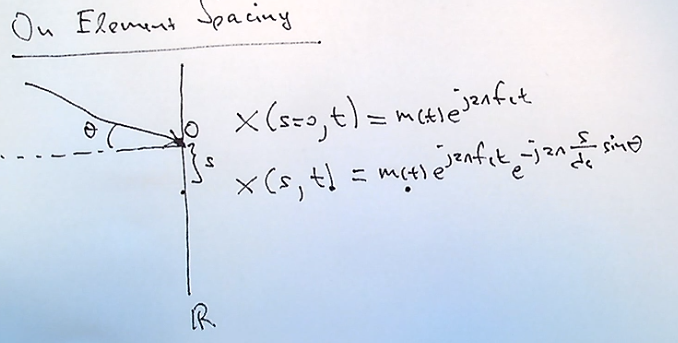 On Element Spacing
θ
O
s
x(s=0,t) = m(t)e^{j2πf_ct}
x(s,t) = m(t)e^{j2πf_ct} e^{-j2π \frac{s}{λ_c} sinθ}
ℝ